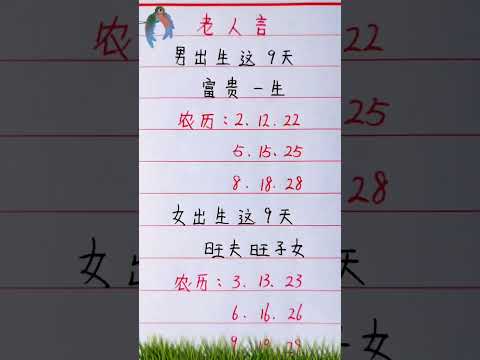 老人言
男出生这9天
富贵一生
农历：2、12、22
5、15、25
8、18、28
女出生这9天
旺夫旺子女
农历：3、13、23
6、16、26
9、19、29